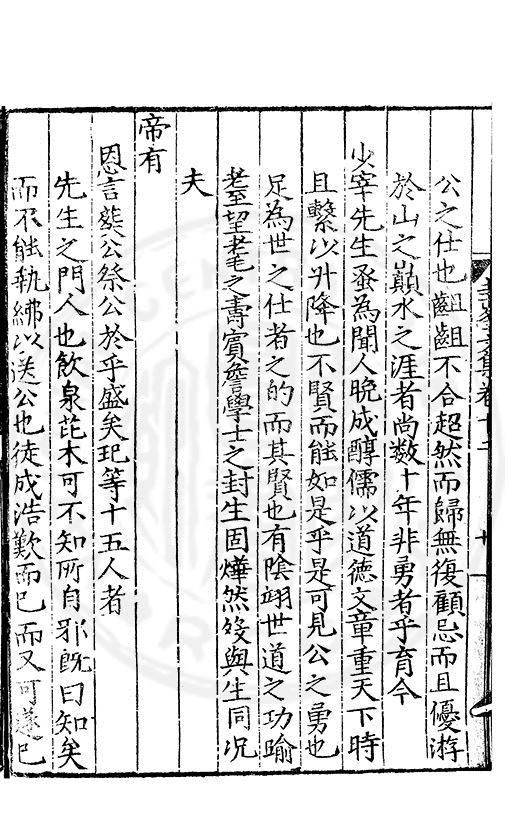 公之仕也齟齬不合超然而歸無復顧忌而且優游
於山之巔水之涯者尚数十年非勇者乎育今
少宰先生蚤為聞人晚成醇儒以道德文章重天下時
且繫以升降也不賢而能如是乎是可見公之勇也
足為世之仕者之的而其賢也有陰翊世道之功踰
耋望耄之壽賓詹學士之封生固燁然歿與生同况
夫
帝有
恩言葬公祭公於乎盛矣玘等十五人者
先生之門人也飲泉芘木可不知所自邪既曰知矣
而不能執紼以送公也徒成浩歎而已而又可遂已